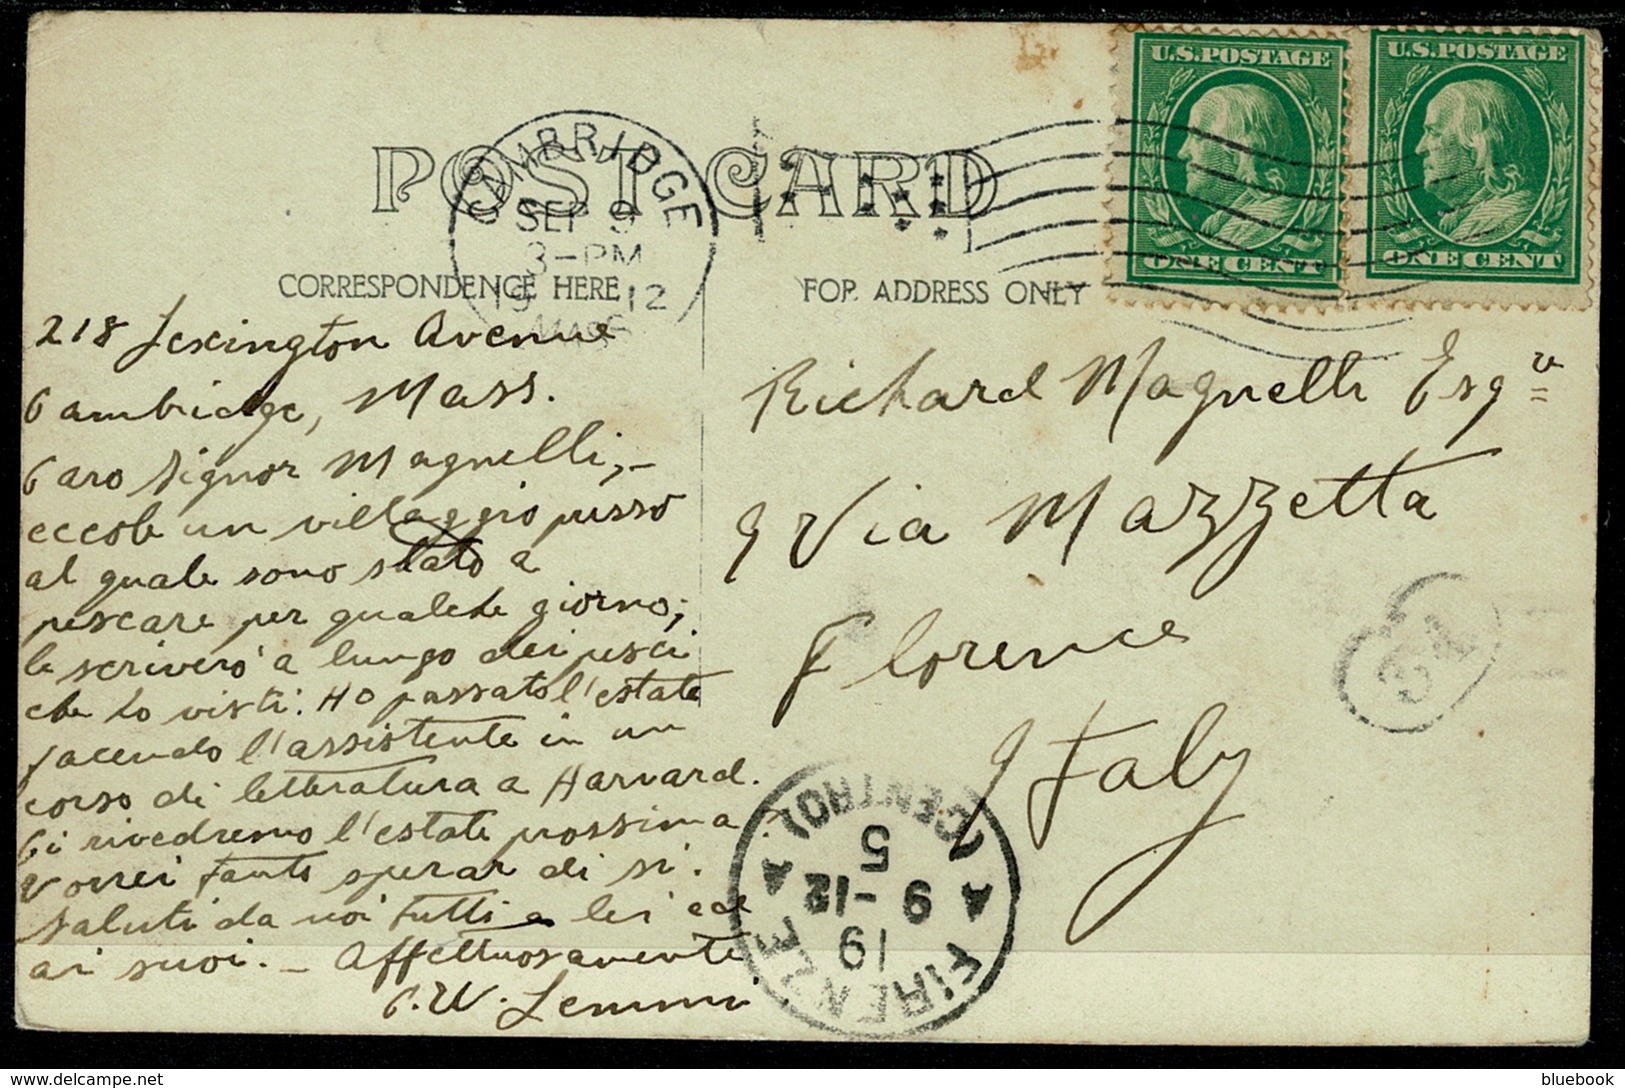 U.S. POSTAGE
U.S. POSTAGE
ONE CENT
ONE CENT
CAMBRIDGE
SEP 9
3-PM
19 12
MASS
POST CARD
CORRESPONDENCE HERE
FOR ADDRESS ONLY
218 Lexington Avenue
Cambridge, Mass.
Caro Signor Magnelli,-
eccole un villaggio presso
al quale sono stato a
pescare per qualche giorno;
le scriverò a lungo dei pesci
che ho visti. Ho passato l'estate
facendo l'assistente in un
corso di letteratura a Harvard.
Ci rivedremo l'estate prossima?
Vorrei tanto sperar di sì.
Saluti da noi tutti a lei ed
ai suoi. - Affettuosamente
C. W. Lemmi
Richard Magnelli Esq
9 Via Mazzetta
Florence
Italy
FIRENZE
(CENTRO)
19
9-12
5
bluebook
www.delcampe.net